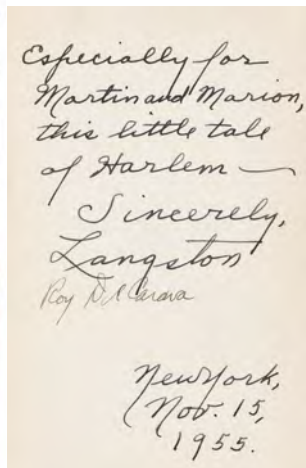 Especially for
Martin and Marion,
this little tale
of Harlem —
Sincerely,
Langston
Roy DeCarava
New York,
Nov. 15,
1955.